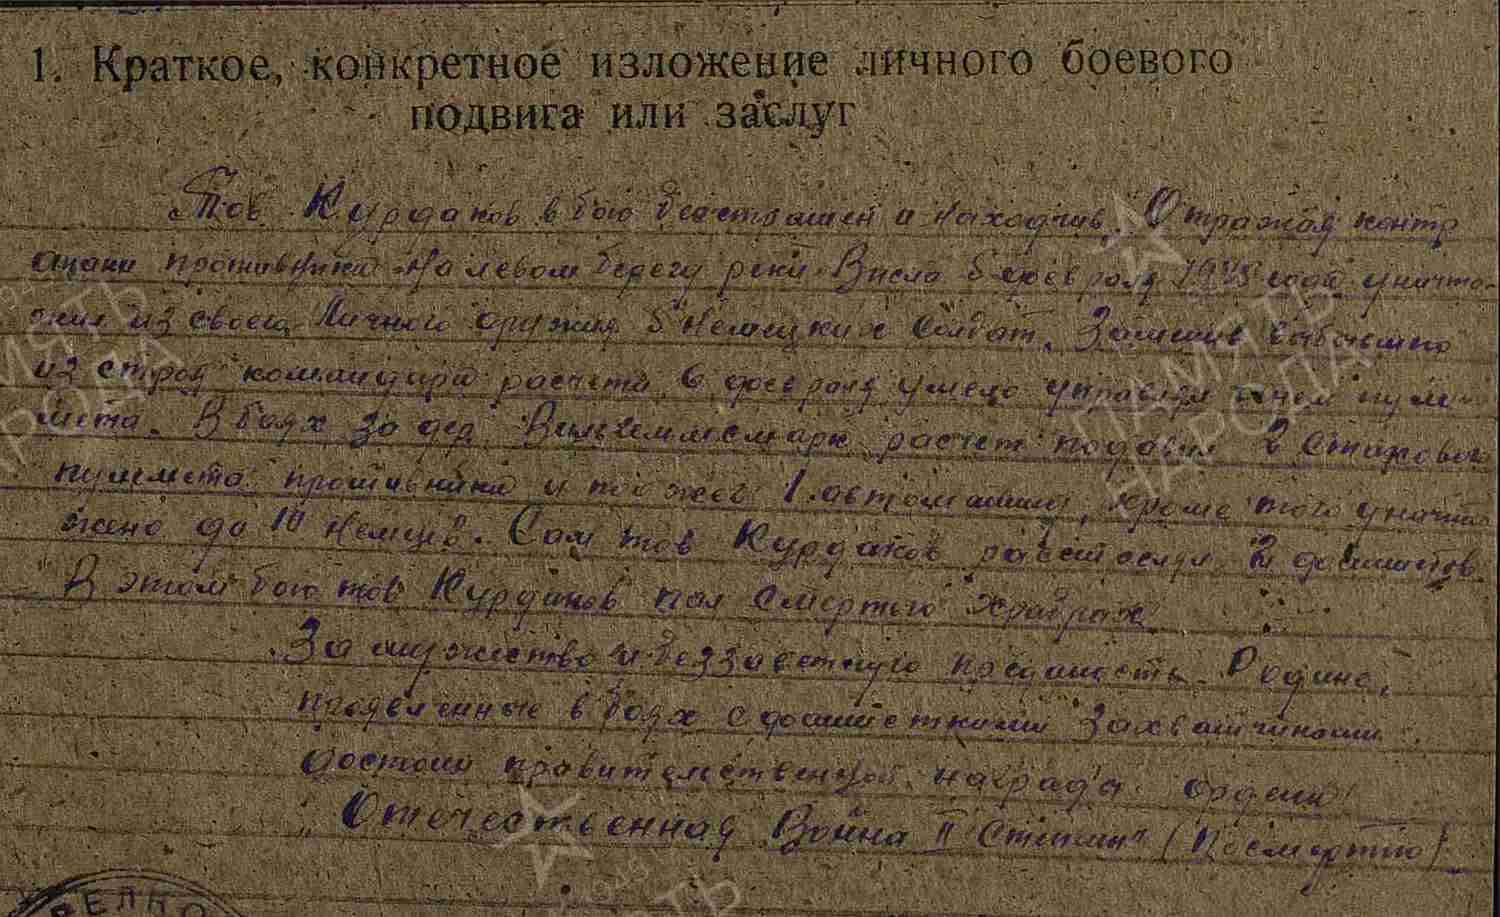 1. Краткое, конкретное изложение личного боевого
подвига или заслуг
Тов Курдаков в бою бесстрашен и находчив. Отражая контр
атаки противника на левом берегу реки Висла 5 февраля 1945 года уничто-
жил из своего личного оружия 5 немецких солдат. Заменив выбывшего
из строя командира расчета, в феврале умело управлял огнем пуле-
мета. В боях за дер. Вильгельмсмарк расчет подавил 2 станковых
пулемета противника и поджег 1 автомашину, кроме того уничто-
жено до 10 немцев. Сам тов Курдаков расстрелял 2 фашистов.
В этом бою тов Курдаков пал смертью храбрых
За мужество и беззаветную преданность Родине,
проявленные в боях с фашисткими захватчиками
достоин правительственной награда ордена
Отечественная Война II Степени" (Посмертно)
ПАМЯТЬ
НАРОДА
ПАМЯТЬ
НАРОДА